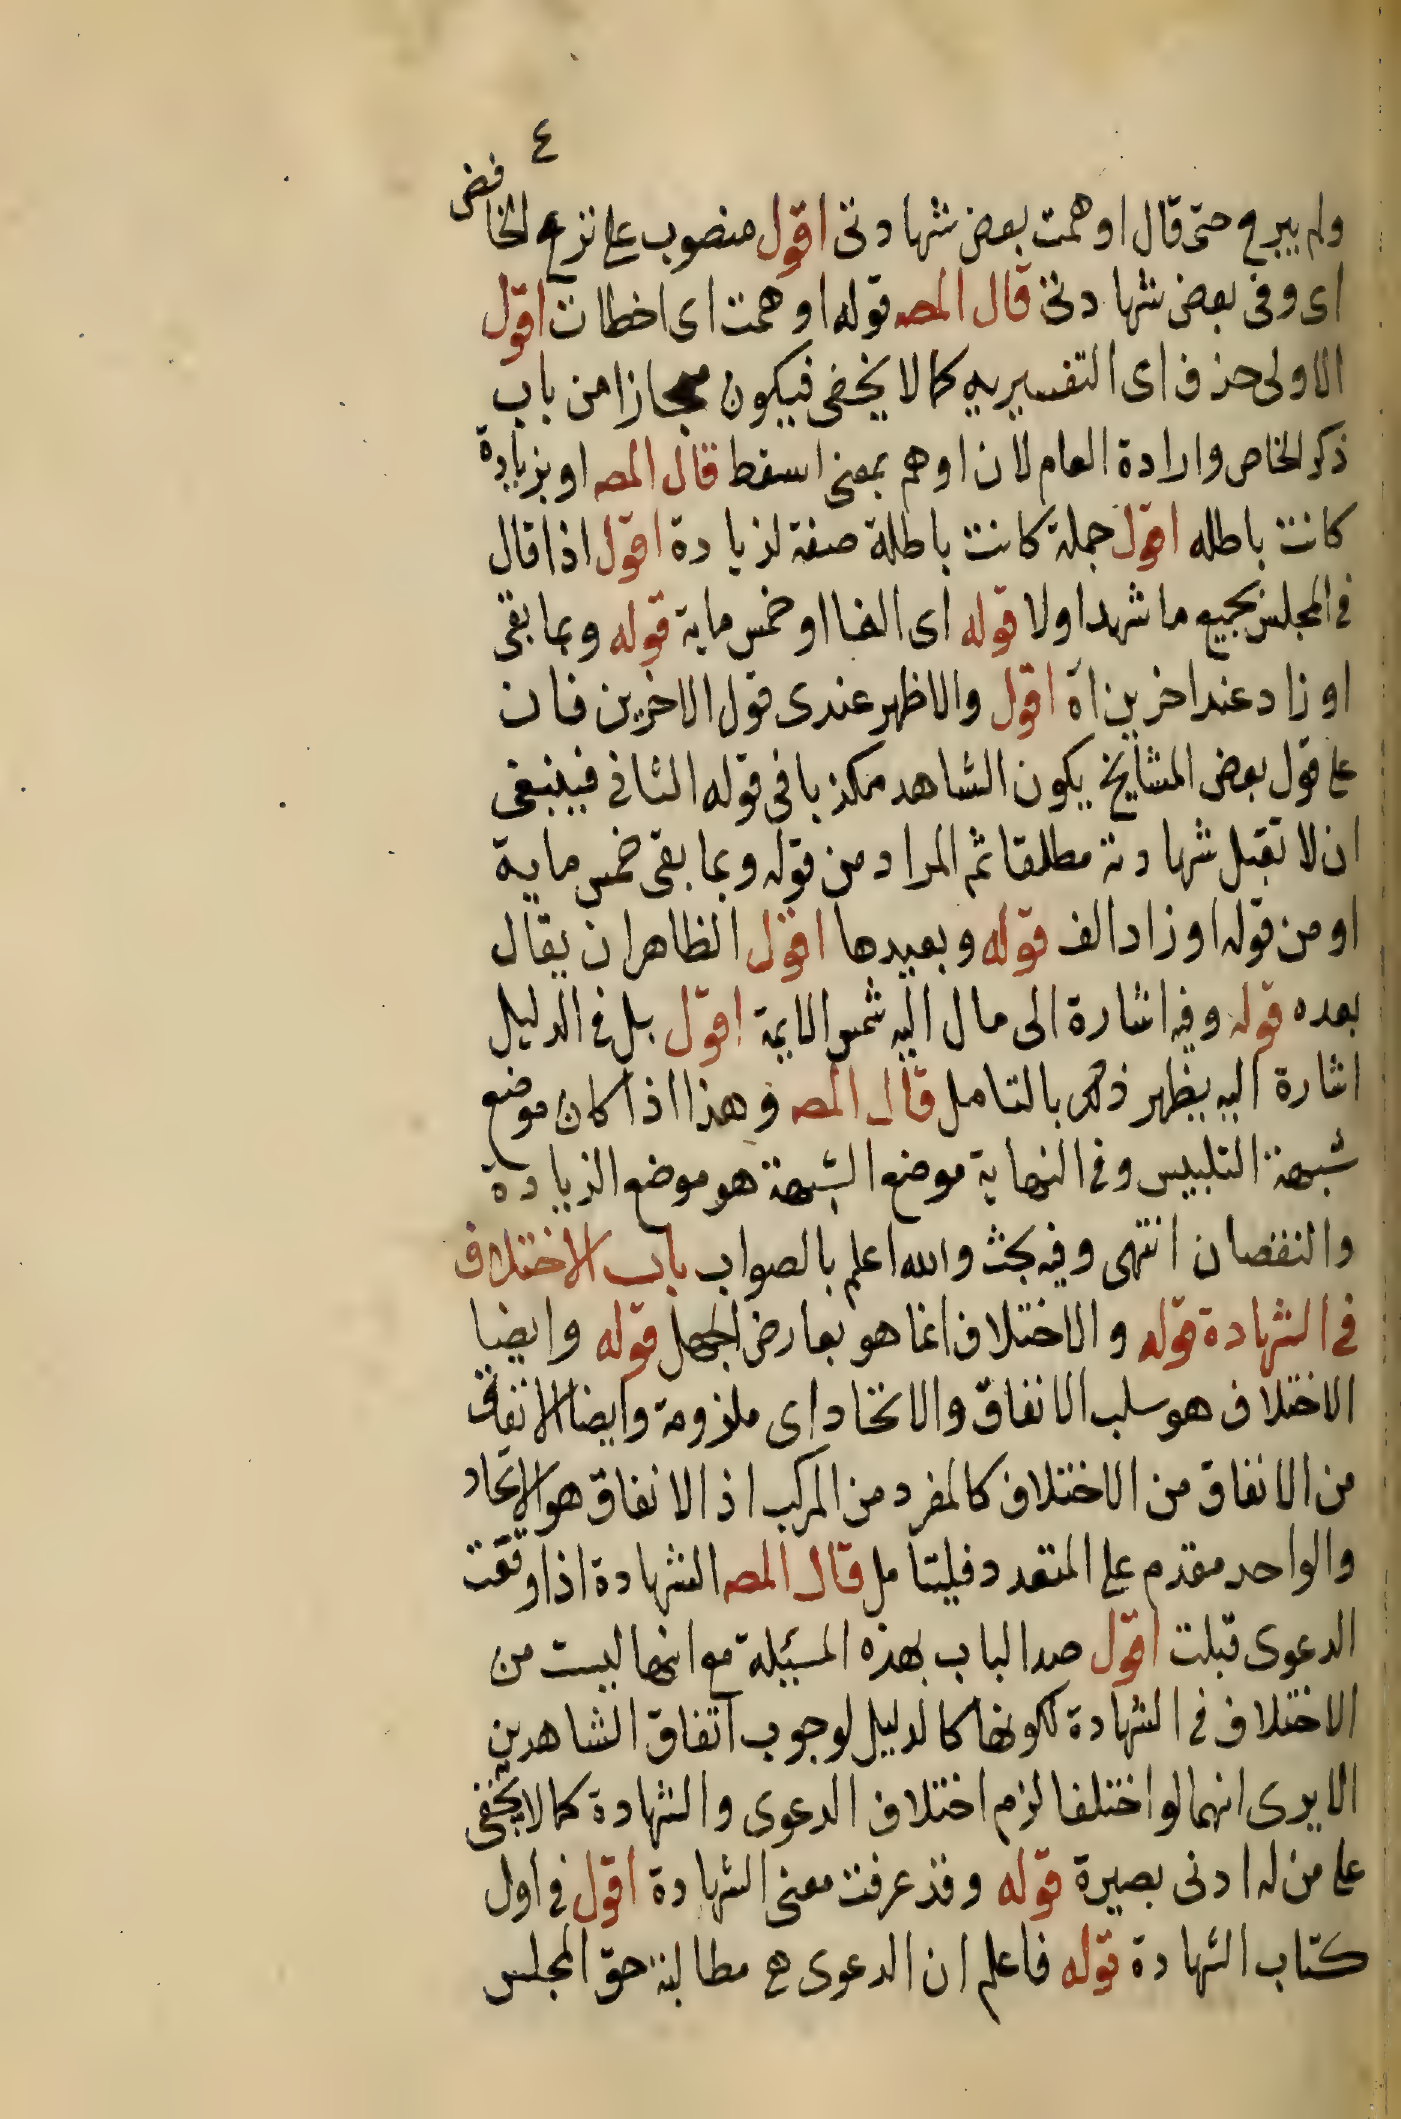 ٤
ولم يبرح حتى قال اوهمت بعض شهادتى اقول منصوب على نزع الخافض
اى وفى بعض شهادتى قال المص قوله اوهمت اى اخطات اقول
الاولى حذف اى التفسيريه كما لا يخفى فيكون مجازا من باب
ذكر الخاص وارادة العام لان اوهم بمعنى اسقط قال المص او بزيادة
كانت باطله اقول جملة كانت باطلة صفة لزيادة اقول اذا قال
فى المجلس بجميع ما شهد اولا قوله اى الفا او خمس ماية قوله وبما بقى
او زاد عند اخرين اه اقول والاظهر عندى قول الاخرين فان
على قول بعض المشايخ يكون الشاهد مكذبا فى قوله الثانى فينبغى
ان لا تقبل شهادته مطلقا ثم المراد من قوله وبما بقى خمس ماية
او من قوله او زاد الف قوله وبعيدها اقول الظاهر ان يقال
بعده قوله وفيه اشارة الى ما مال اليه شمس الايمة اقول بل فى الدليل
اشارة اليه يظهر ذلك بالتامل قال المص وهذا اذا كان موضع
شبهة التلبيس وفى النهاية موضع الشبهة هو موضع الزيادة
والنقصان انتهى وفيه بحث والله اعلم بالصواب باب الاختلاف
فى الشهادة قوله والاختلاف انما هو بعارض الجهل قوله وايضا
الاختلاف هو سلب الاتفاق والاتحاد اى ملزومة وايضا الاتفاق
من الاتفاق من الاختلاف كالمفرد من المركب اذ الاتفاق هو الاتحاد
والواحد مقدم على المتعدد فليتامل قال المص الشهادة اذا وقعت
الدعوى قبلت اقول صدا الباب بهذه المسئلة مع انها ليست من
الاختلاف فى الشهادة لكونها كالدليل لوجوب اتفاق الشاهدين
الا يرى انهما لو اختلفا لزم اختلاف الدعوى والشهادة كما لا يخفى
على من له ادنى بصيرة قوله وقد عرفت معنى الشهادة اقول فى اول
كتاب الشهادة قوله فاعلم ان الدعوى هى مطالبة حق المجلس